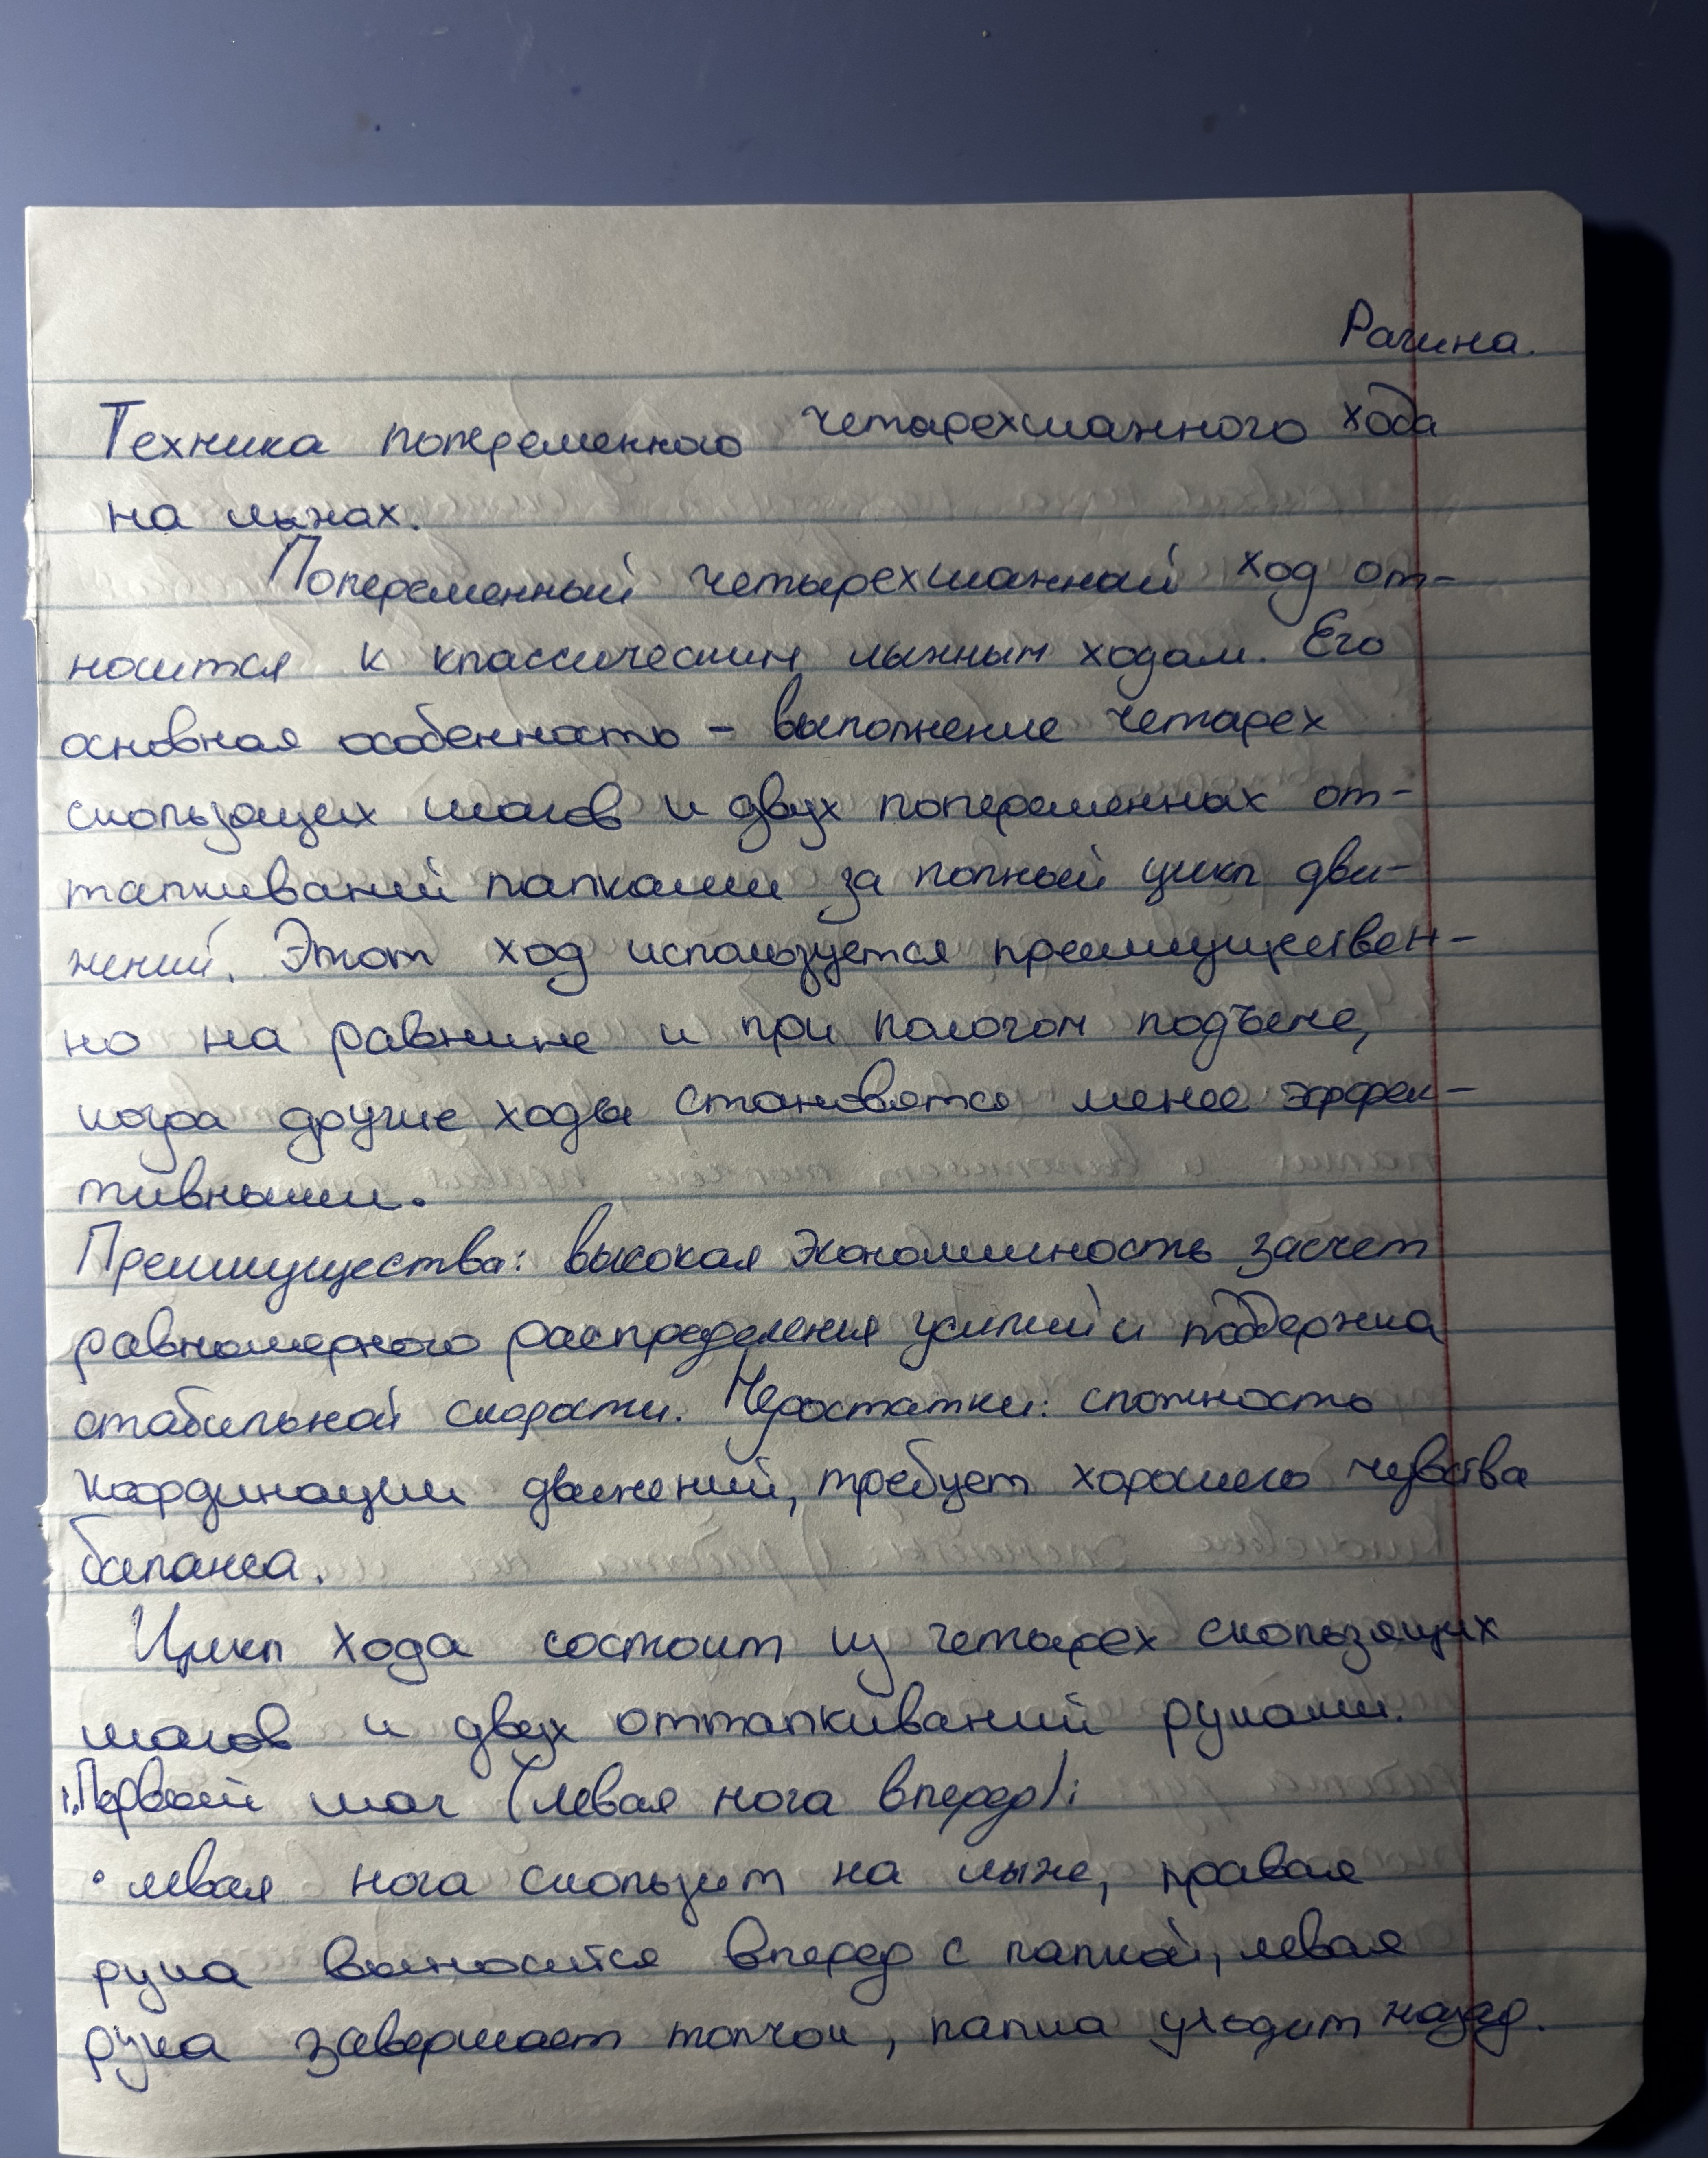 Рагина.
Техника попеременного четырехшажного хода
на лыжах.
Попеременный четырехшажный ход от-
носится к классическим лыжным ходам. Его
основная особенность – выполнение четырех
скользящих шагов и двух попеременных от-
талкиваний палками за полный цикл дви-
жений. Этот ход используется преимуществен-
но на равнине и при пологом подъеме,
когда другие ходы становятся менее эффек-
тивными.
Преимущества: высокая экономичность засчет
равномерного распределения усилий и поддержка
стабильной скорости. Недостатки: сложность
координации движений, требует хорошего чувства
баланса.
Цикл хода состоит из четырех скользящих
шагов и двух отталкиваний руками.
1. Первый шаг (левая нога вперед):
• левая нога скользит на лыже, правая
рука выносится вперед с палкой, левая
рука завершает толчок, палка уходит назад.